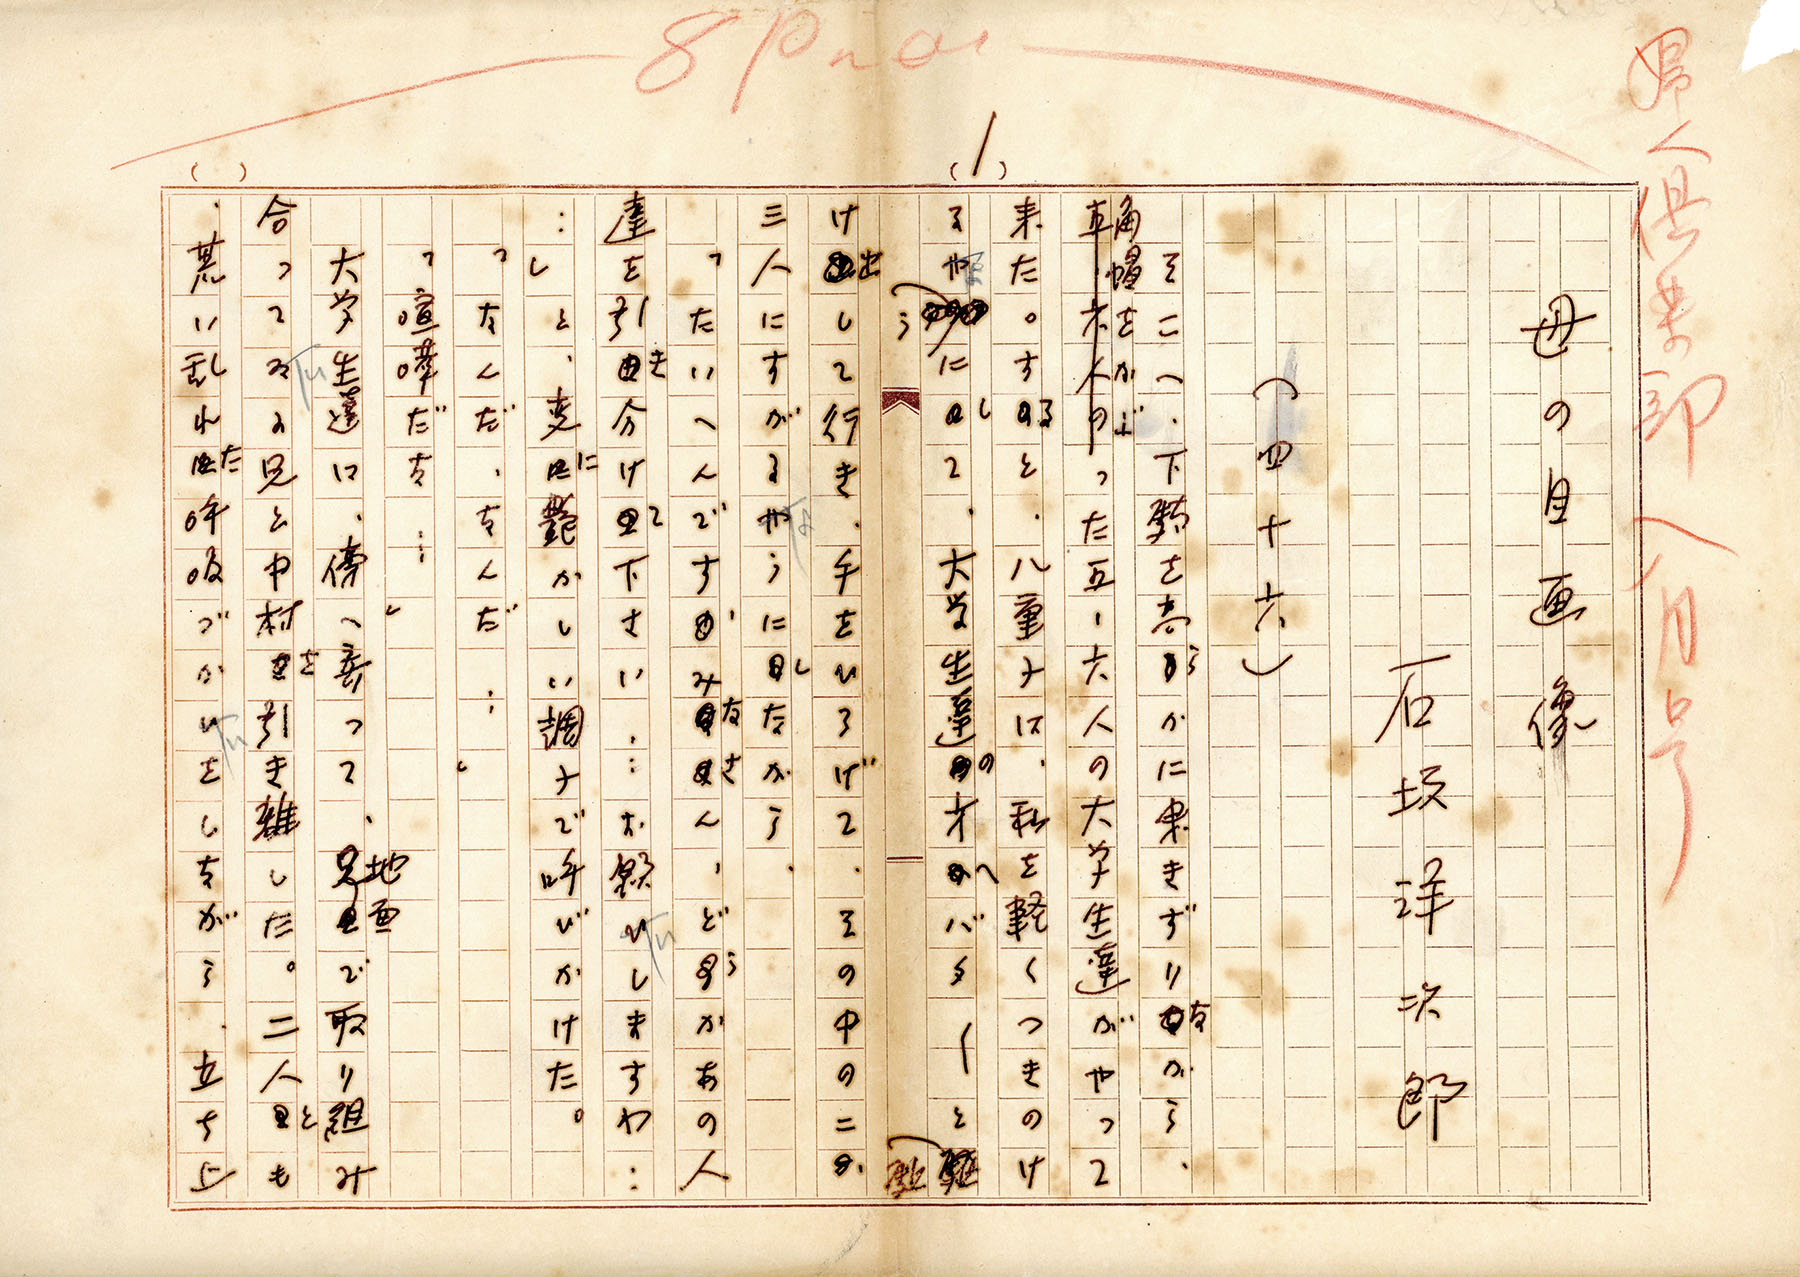 婦人倶楽部 八月号
8
1
母の自画像
石坂洋次郎
(四十六)
そこへ、下駄を高らかに東きずりながら、
角帽をかぶった五、六人の大学生達がやって
来た。すると、八重子は、私を軽くつきのけ
るやうにして、大学生達の方へバターと駈
け出して行き、手をひろげて、その中の二、
三人にすがるやうにしながら、
「たいへんです、みなさん、どうかあの人
達を引き分けて下さい……お願ひしますわ…
…」と、変に艶かしい調子で呼びかけた。
「なんだ、なんだ……」
「喧嘩だな……」
大学生達は、傍へ寄って、地面で取り組み
合ってゐる兄と中村を引き離した。二人とも
、荒い乱れた呼吸づかひをしながら、立ち上